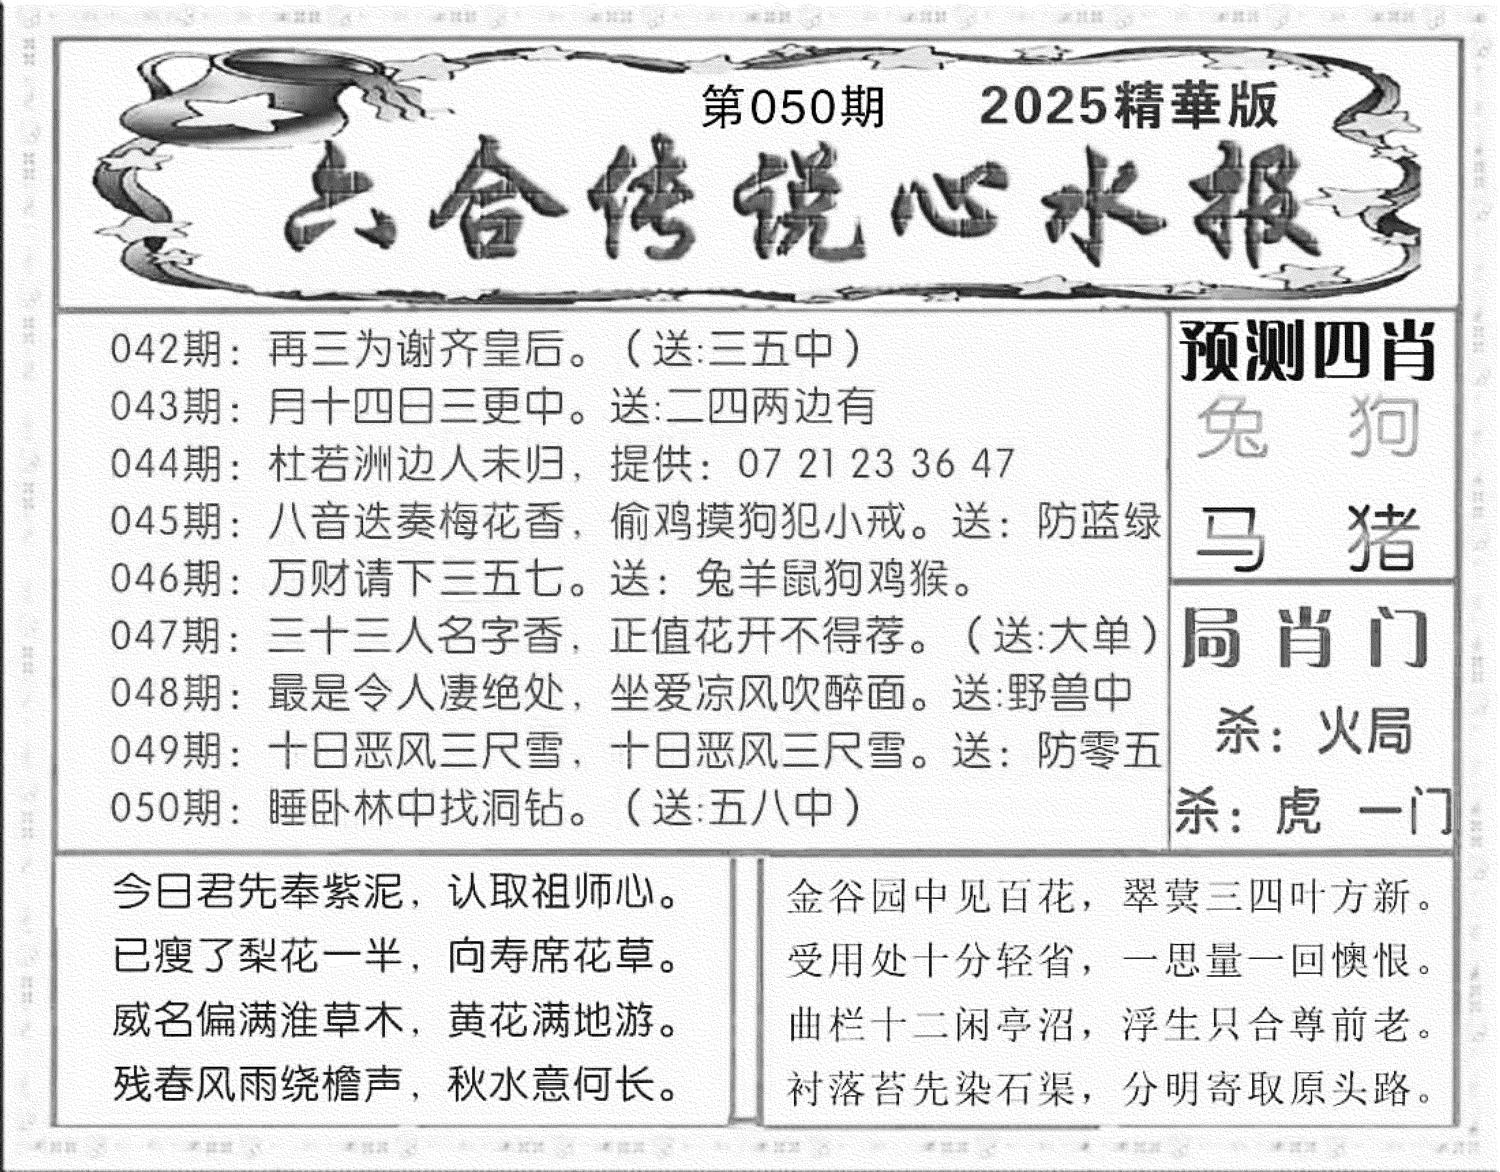 第050期 2025精華版
六合传说心水报
042期：再三为谢齐皇后。（送:三五中）
043期：月十四日三更中。送:二四两边有
044期：杜若洲边人未归，提供：07 21 23 36 47
045期：八音迭奏梅花香，偷鸡摸狗犯小戒。送：防蓝绿
046期：万财请下三五七。送：兔羊鼠狗鸡猴。
047期：三十三人名字香，正值花开不得荐。（送:大单）
048期：最是令人凄绝处，坐爱凉风吹醉面。送:野兽中
049期：十日恶风三尺雪，十日恶风三尺雪。送：防零五
050期：睡卧林中找洞钻。（送:五八中）
预测四肖
兔 狗
马 猪
局肖门
杀：火局
杀：虎 一门
今日君先奉紫泥，认取祖师心。
已瘦了梨花一半，向寿席花草。
威名偏满淮草木，黄花满地游。
残春风雨绕檐声，秋水意何长。
金谷园中见百花，翠蓂三四叶方新。
受用处十分轻省，一思量一回懊恨。
曲栏十二闲亭沼，浮生只合尊前老。
衬落苔先染石渠，分明寄取原头路。